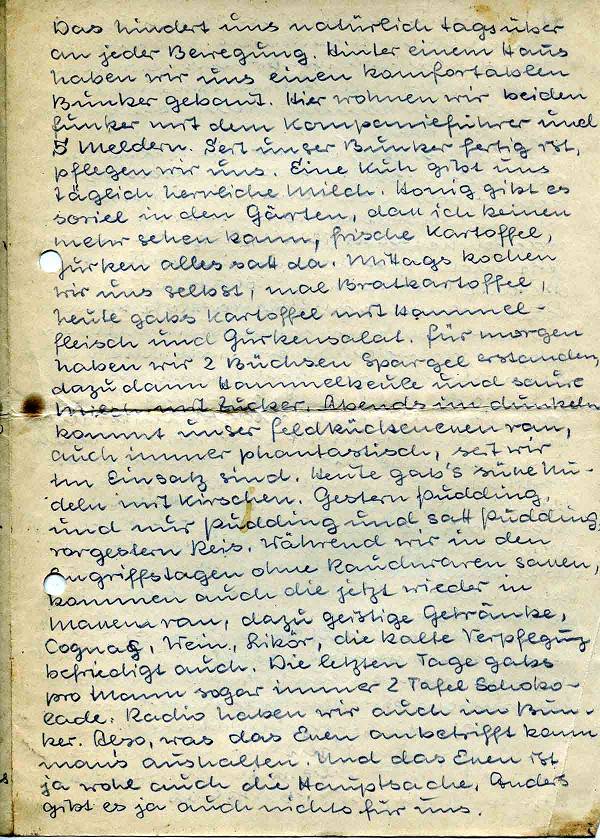 Das hindert uns natürlich tagsüber
an jeder Bewegung. Hinter einem Haus
haben wir uns einen komfortablen
Bunker gebaut. Hier wohnen wir beiden
Funker mit dem Kompanieführer und
5 Meldern. Seit unser Bunker fertig ist,
pflegen wir uns. Eine Kuh gibt uns
täglich herrliche Milch. Honig gibt es
soviel in den Gärten, daß ich keinen
mehr sehen kann, frische Kartoffel,
Gurken alles satt da. Mittags kochen
wir uns selbst, mal Bratkartoffel,
heute gabs Kartoffel mit Hammel-
fleisch und Gurkensalat. Für morgen
haben wir 2 Büchsen Spargel erstanden,
dazu dann Hammelkeule und saure
Milch mit Zucker. Abends im dunkeln
kommt unser Feldküchenenen ran,
auch immer phantastisch, seit wir
im Einsatz sind. Heute gab's süße Nu-
deln mit Kirschen. Gestern Pudding,
und nur Pudding und satt Pudding,
vorgestern Reis. Während wir in den
Angriffstagen ohne Rauchwaren saßen,
kommen auch die jetzt wieder in
Massen ran, dazu geistige Getränke,
Cognag, Wein, Likör, die kalte Verpflegung
befriedigt auch. Die letzten Tage gabs
pro Mann sogar immer 2 Tafel Schoko-
lade. Radio haben wir auch im Bun-
ker. Also, was das Essen anbetrifft kann
man's aushalten. Und das Essen ist
ja wohl auch die Hauptsache. Anders
gibt es ja auch nichts für uns.